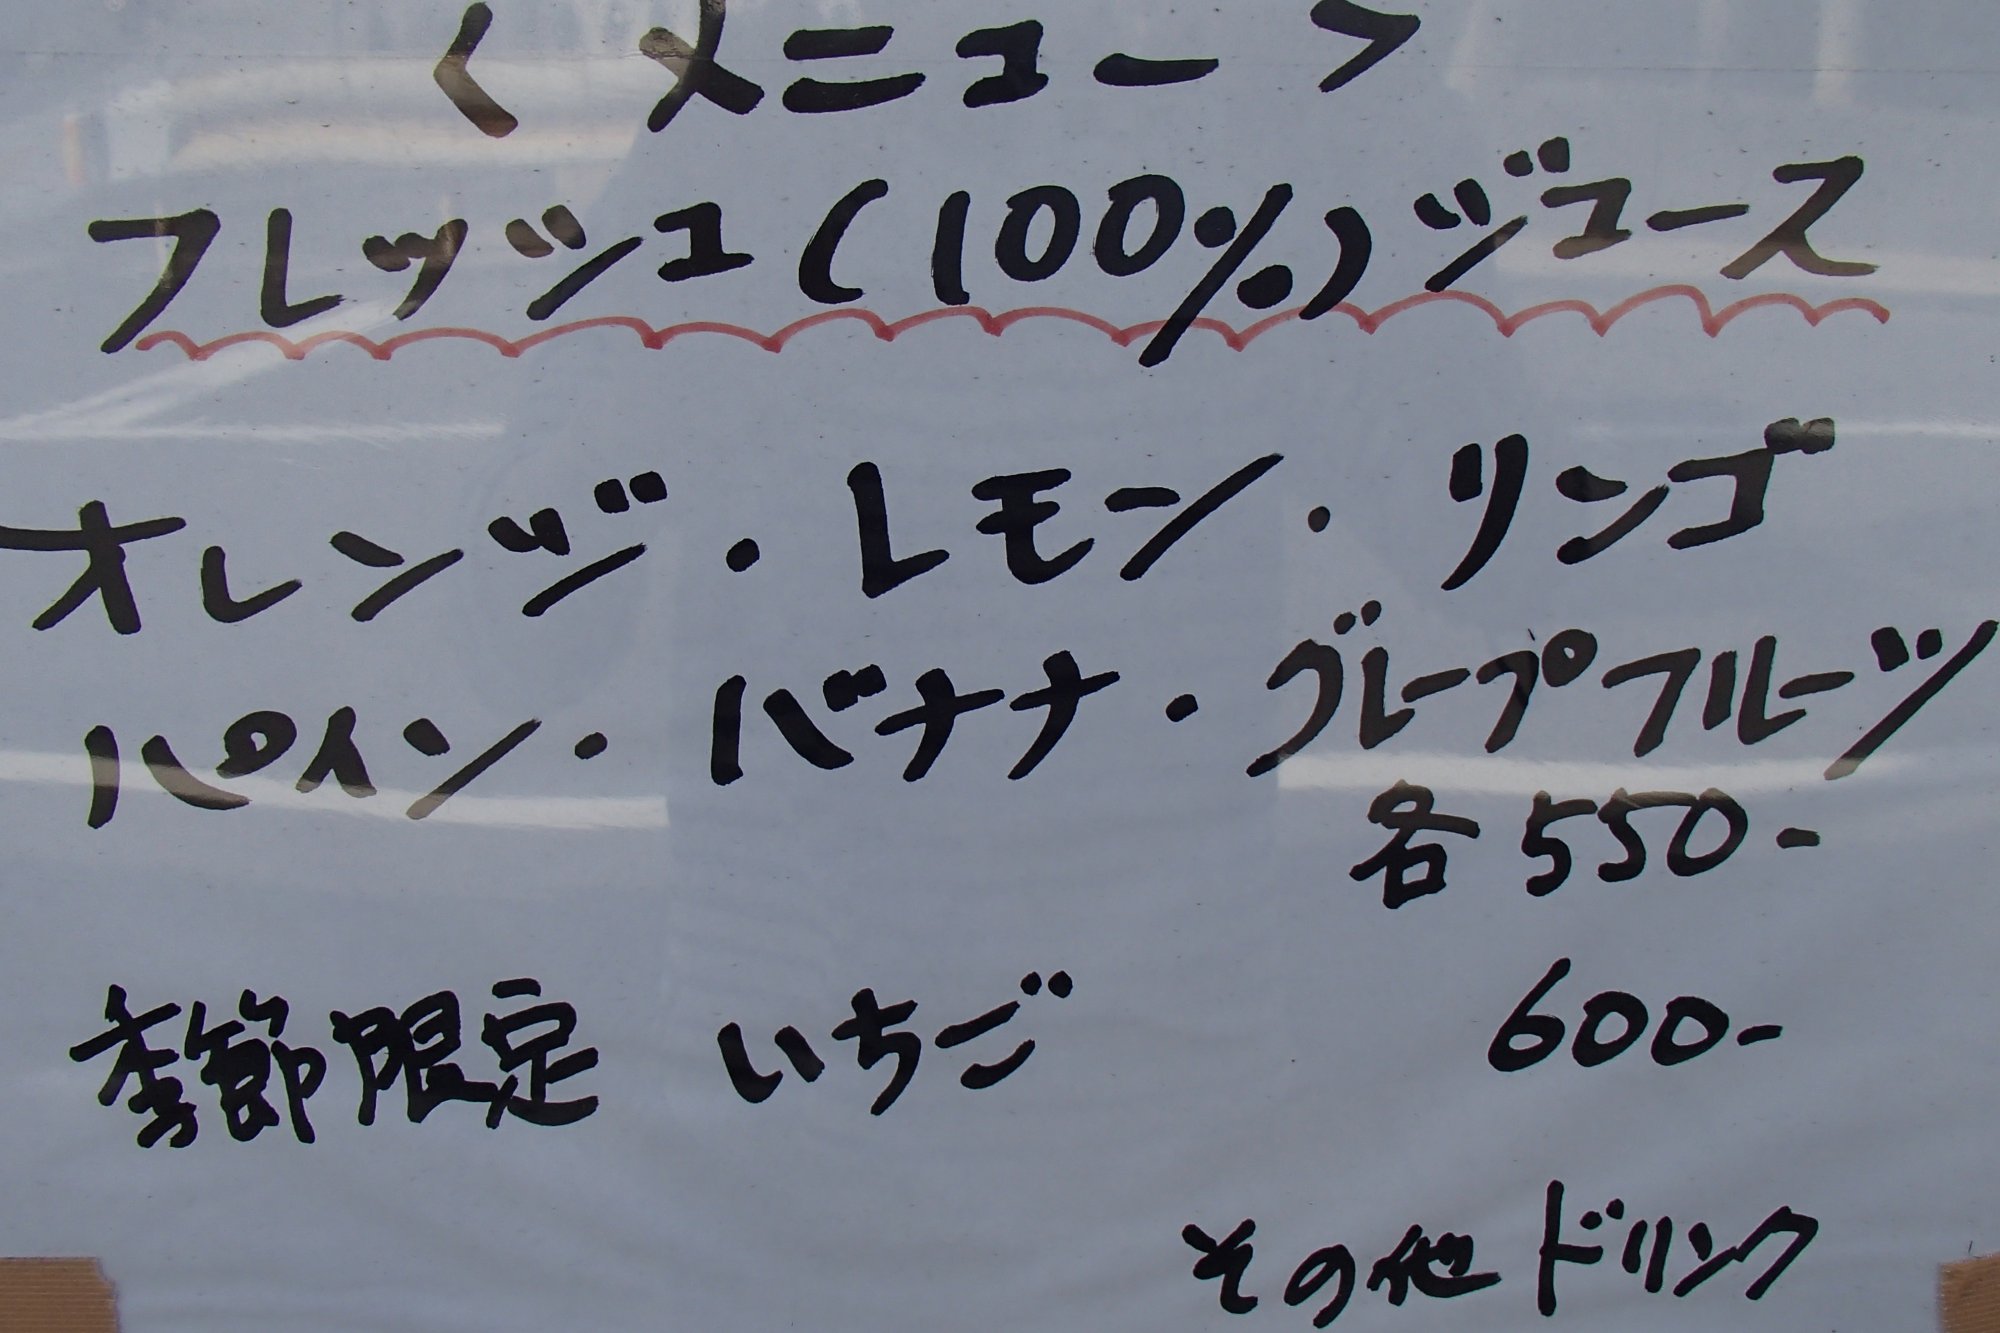 〈 メニュー 〉
フレッシュ(100%)ジュース
オレンジ・レモン・リンゴ
パイン・バナナ・グレープフルーツ
各550-
季節限定 いちご 600-
その他ドリンク